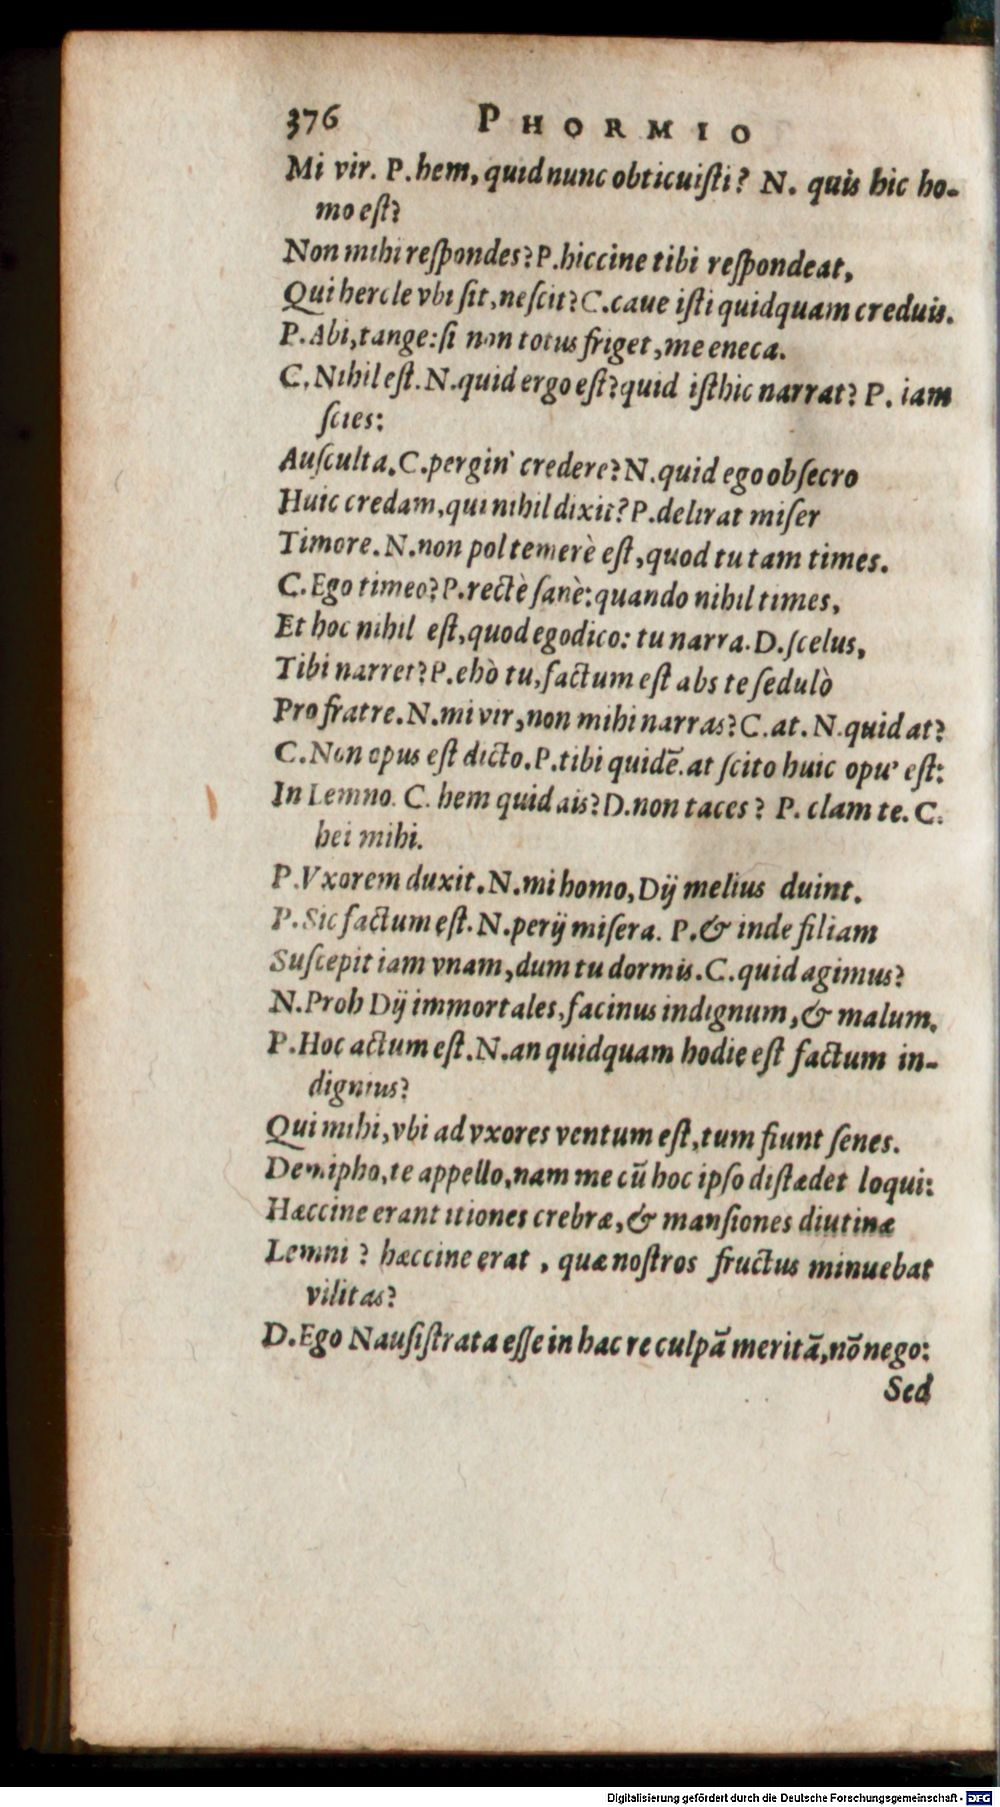 376 PHORMIO
Mi vir. P. hem, quid nunc obticuiſti? N. quis hic ho-
mo eſt?
Non mihi reſpondes? P. hiccine tibi reſpondeat,
Qui hercle vbi ſit, neſcit? C. caue iſti quidquam creduis.
P. Abi, tange: ſi non totus friget, me eneca.
C. Nihil eſt. N. quid ergo eſt? quid iſthic narrat? P. iam
ſcies:
Auſculta. C. pergin' credere? N. quid ego obſecro
Huic credam, qui nihil dixit? P. delirat miſer
Timore. N. non pol temerè eſt, quod tu tam times.
C. Ego timeo? P. rectè ſanè: quando nihil times,
Et hoc nihil eſt, quod ego dico: tu narra. D. ſcelus,
Tibi narret? P. ehò tu, factum eſt abs te ſedulò
Pro fratre. N. mi vir, non mihi narras? C. at. N. quid at?
C. Non opus eſt dicto. P. tibi quidē. at ſcito huic opu' eſt:
In Lemno. C. hem quid ais? D. non taces? P. clam te. C.
hei mihi.
P. Vxorem duxit. N. mi homo, Dij melius duint.
P. Sic factum eſt. N. perij miſera. P. & inde filiam
Suſcepit iam vnam, dum tu dormis. C. quid agimus?
N. Proh Dij immortales, facinus indignum, & malum.
P. Hoc actum eſt. N. an quidquam hodie eſt factum in-
dignius?
Qui mihi, vbi ad vxores ventum eſt, tum fiunt ſenes.
Demipho, te appello, nam me cū hoc ipſo diſtædet loqui:
Hæccine erant itiones crebræ, & manſiones diutinæ
Lemni? hæccine erat, quæ noſtros fructus minuebat
vilitas?
D. Ego Nauſiſtrata eſſe in hac re culpā meritā, nō nego:
Sed
Digitalisierung gefördert durch die Deutsche Forschungsgemeinschaft - DFG